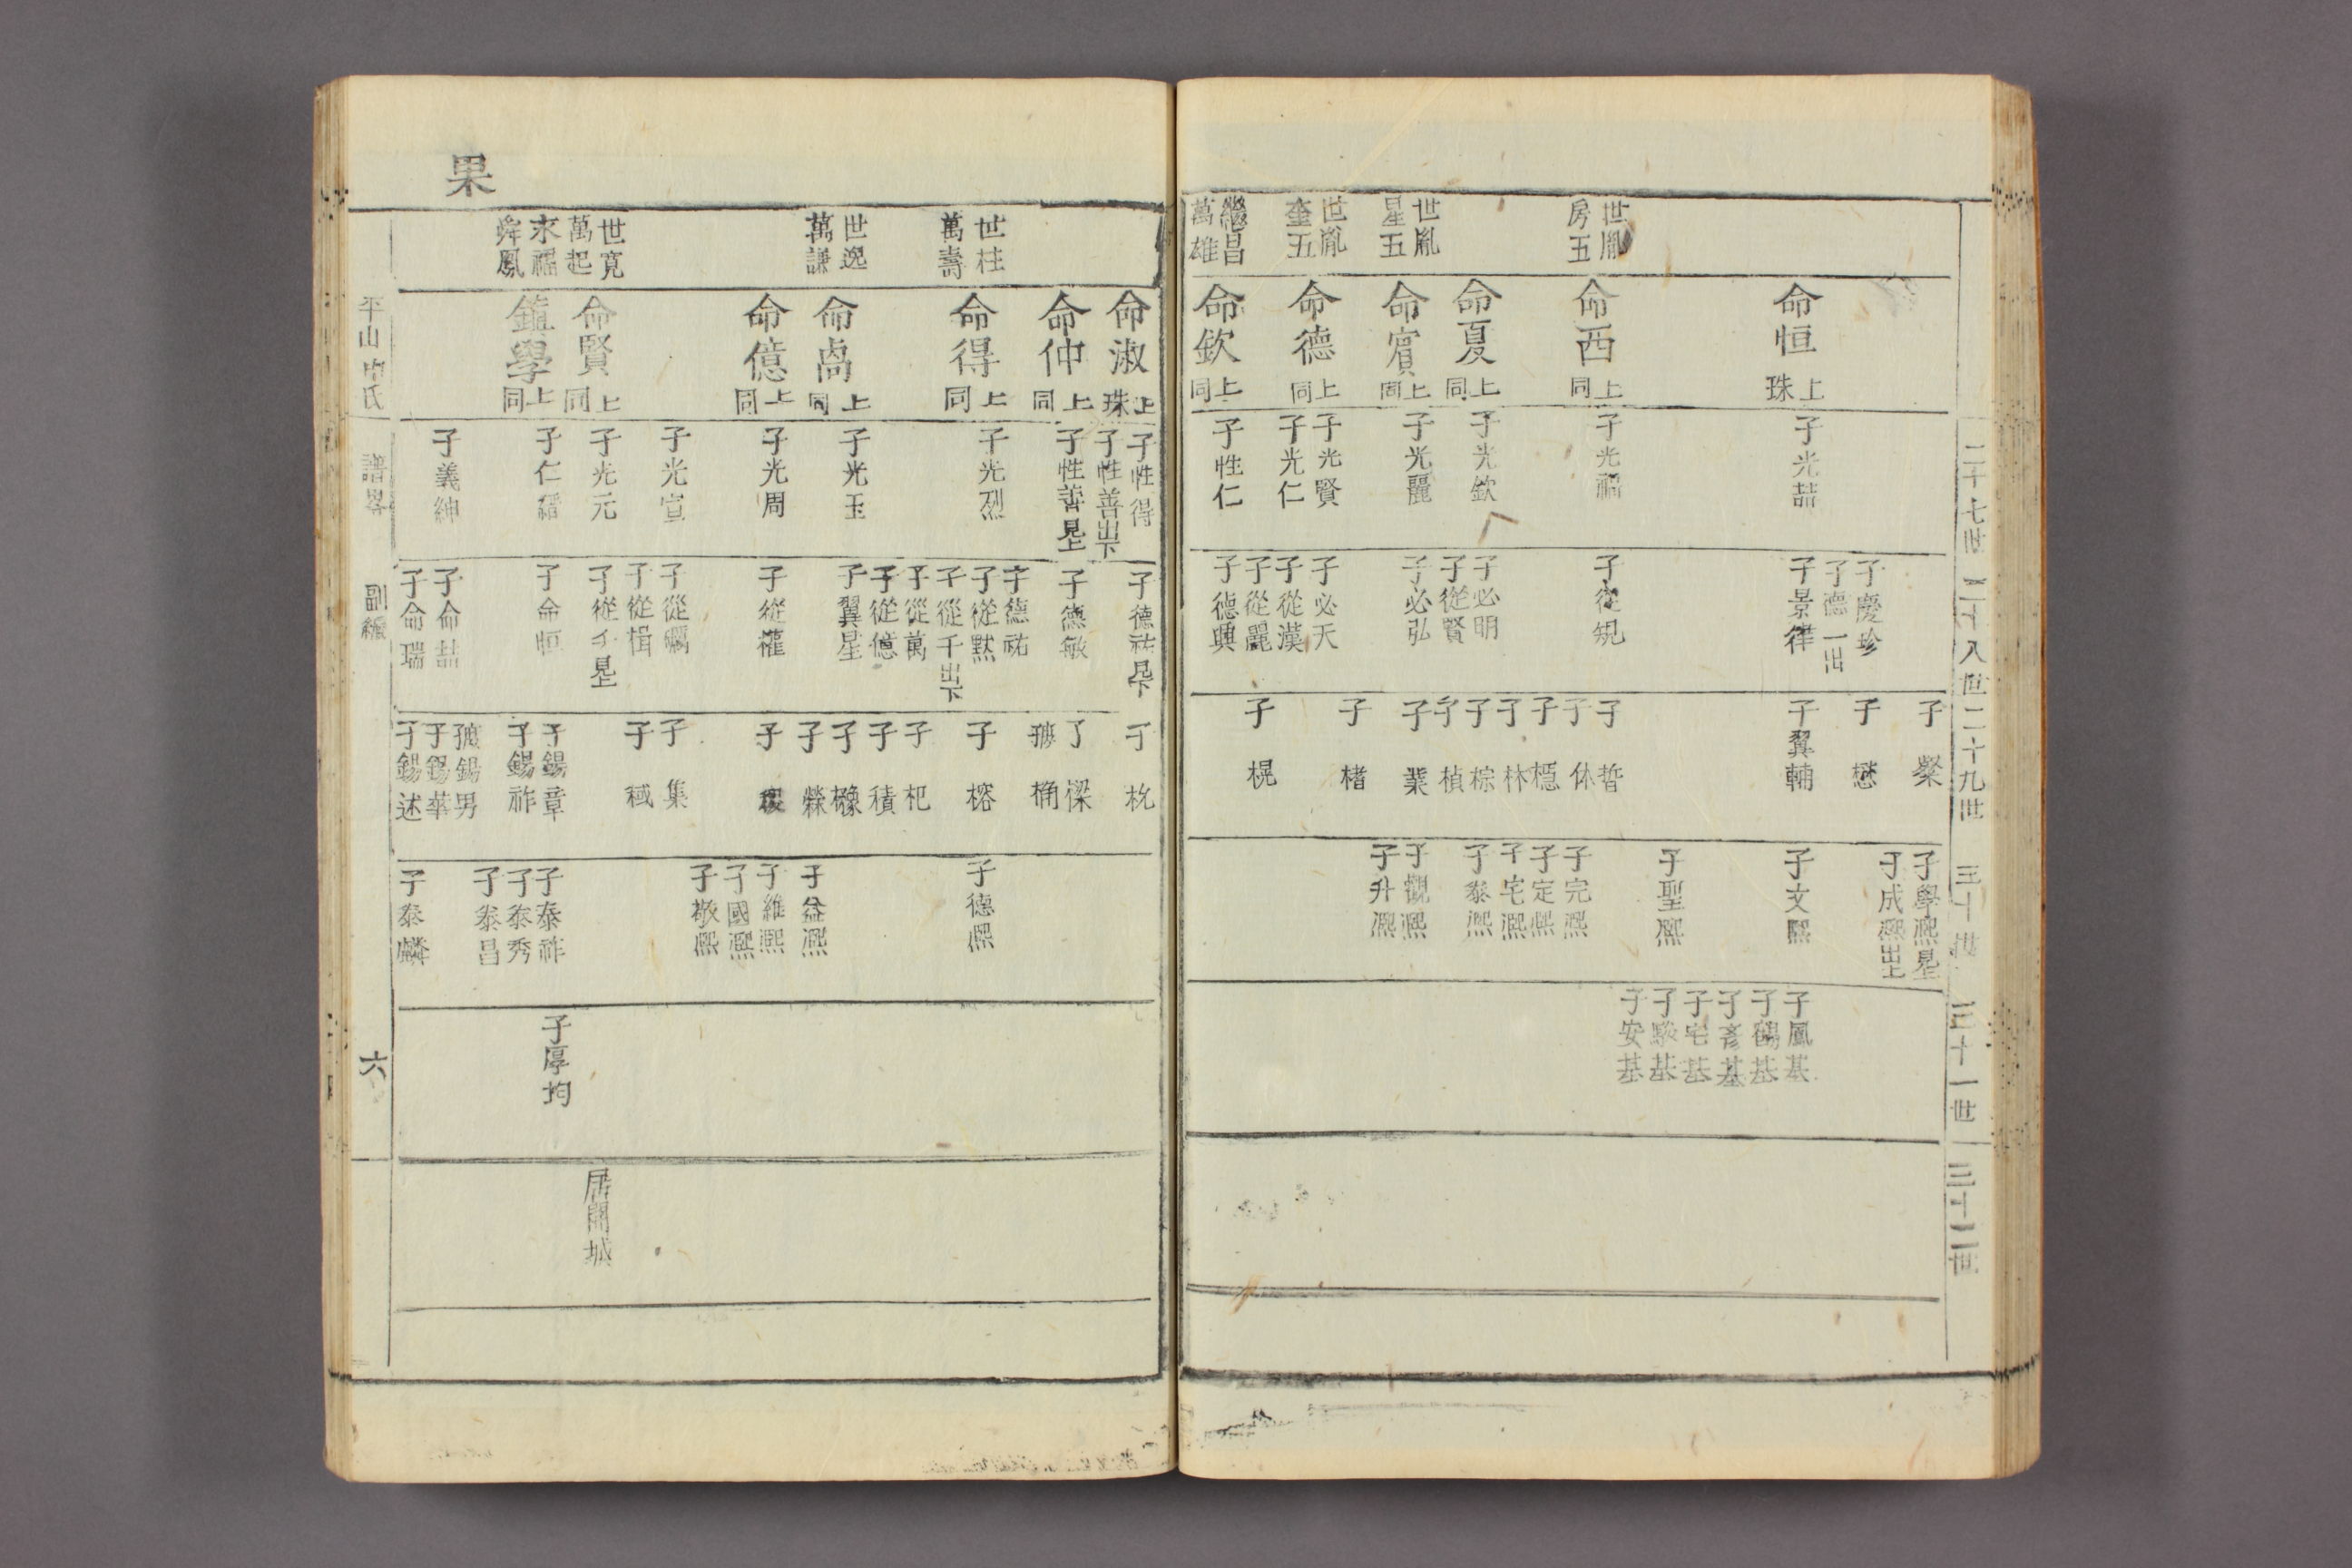 二十七世
二十八世
二十九世
三十世
三十一世
三十二世
世胤
房五
世胤
星五
世胤
奎五
繼昌
萬雄
命恒 上珠
命西 上同
命夏 上同
命賓 上同
命德 上同
命欽 上同
子光喆
子光福
子光欽
子光麗
子光賢
子光仁
子性仁
子慶珍
子德一出
子景律
子從規
子必明
子從賢
子必弘
子必天
子從漢
子從麗
子德興
子 槃
子 懋
子翼輔
子 晢
子 休
子 檼
子 林
子 棕
子 楨
子 業
子 楮
子 榥
子學熙
子成熙出上
子文熙
子聖熙
子完熙
子定熙
子宅熙
子泰熙
子觀熙
子升熙
子鳳基
子鶴基
子彥基
子宅基
子駿基
子安基
果
世柱
萬壽
世逸
萬謙
世寛
萬起
永福
舜鳳
命淑 上珠
命仲 上同
命得 上同
命卨 上同
命億 上同
命賢 上同
學 上同
子性得
子性善出下
子性善
子光烈
子光玉
子光周
子光宣
子光元
子仁縉
子義紳
子德祜
子德敏
子德祐
子從默
子從千出下
子從萬
子從億
子翼星
子從權
子從
子從楫
子從千
子命恒
子命喆
子命瑞
子 杬
子 樑
桷
子 榕
子 杷
子 積
子 櫲
子 檾
子 稷
子 集
子 棫
子錫章
子錫祚
錫男
子錫華
子錫述
子德熙
子益熙
子維熙
子國熙
子敬熙
子泰祚
子泰秀
子泰昌
子泰麟
子厚均
居開城
平山申氏
譜畧
副編
六